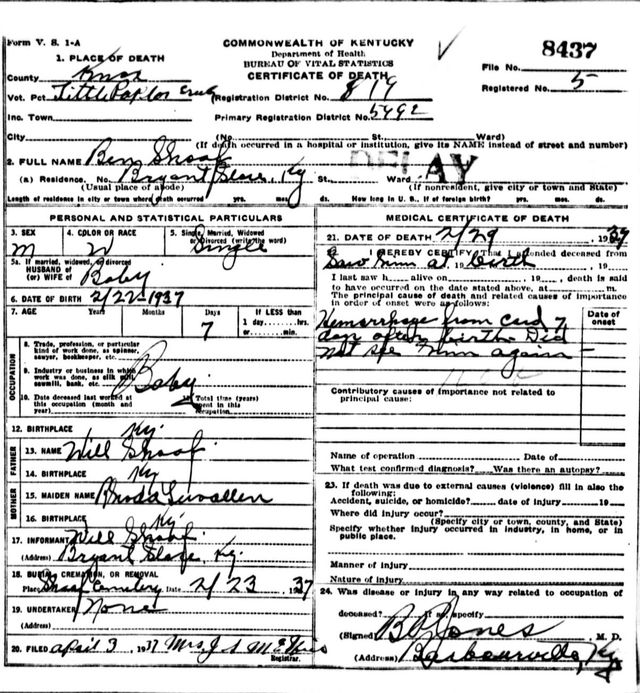 Form V. S. 1-A
COMMONWEALTH OF KENTUCKY
Department of Health
BUREAU OF VITAL STATISTICS
CERTIFICATE OF DEATH
File No. 8437
Registered No. 5
1. PLACE OF DEATH
County Knox
Vot. Pct. Little Poplar Creek
Registration District No. 819
Inc. Town
Primary Registration District No. 5492
City (No. St. Ward)
(If death occurred in a hospital or institution, give its NAME instead of street and number)
2. FULL NAME Ben Shoaf
DELAY
(a) Residence. No. Bryant Store, Ky St. Ward
(Usual place of abode) (If nonresident, give city or town and State)
Length of residence in city or town where death occurred yrs. mos. ds. How long in U. S., if of foreign birth? yrs. mos. ds.
PERSONAL AND STATISTICAL PARTICULARS
3. SEX M
4. COLOR OR RACE W
5. Single, Married, Widowed or Divorced (write the word) Single
5a. If married, widowed, or divorced
HUSBAND of
(or) WIFE of Baby
6. DATE OF BIRTH 2/22-1937
7. AGE Years Months Days 7
If LESS than
1 day,....hrs.
or........min.
OCCUPATION
8. Trade, profession, or particular kind of work done, as spinner, sawyer, bookkeeper, etc.
9. Industry or business in which work was done, as silk mill, sawmill, bank, etc. Baby
10. Date deceased last worked at this occupation (month and year)
11. Total time (years) spent in this occupation
12. BIRTHPLACE Ky.
FATHER
13. NAME Will Shoaf
14. BIRTHPLACE Ky
MOTHER
15. MAIDEN NAME Rhoda Luvallen
16. BIRTHPLACE Ky.
17. INFORMANT Will Shoaf
(Address) Bryant Store, Ky.
18. BURIAL, CREMATION, OR REMOVAL
Place Shoaf Cemetery Date 2/23 1937
19. UNDERTAKER None
20. FILED April 3 1937 Mrs. J S
Registrar.
MEDICAL CERTIFICATE OF DEATH
21. DATE OF DEATH 2/29 1937
22. I HEREBY CERTIFY, That I attended deceased from
Saw him at, 19 birth, 19
I last saw h alive on , 19 , death is said
to have occurred on the date stated above, at m.
The principal cause of death and related causes of importance in order of onset were as follows:
Date of onset
Hemorrhage from Cord 7
days after birth. Did
not see him again
Contributory causes of importance not related to principal cause:
Name of operation Date of
What test confirmed diagnosis? Was there an autopsy?
23. If death was due to external causes (violence) fill in also the following:
Accident, suicide, or homicide? date of injury 19
Where did injury occur?
(Specify city or town, county, and State)
Specify whether injury occurred in industry, in home, or in public place.
Manner of injury
Nature of injury
24. Was disease or injury in any way related to occupation of deceased? If so, specify
(Signed) B Jones, M. D.
(Address) Barbourville, Ky